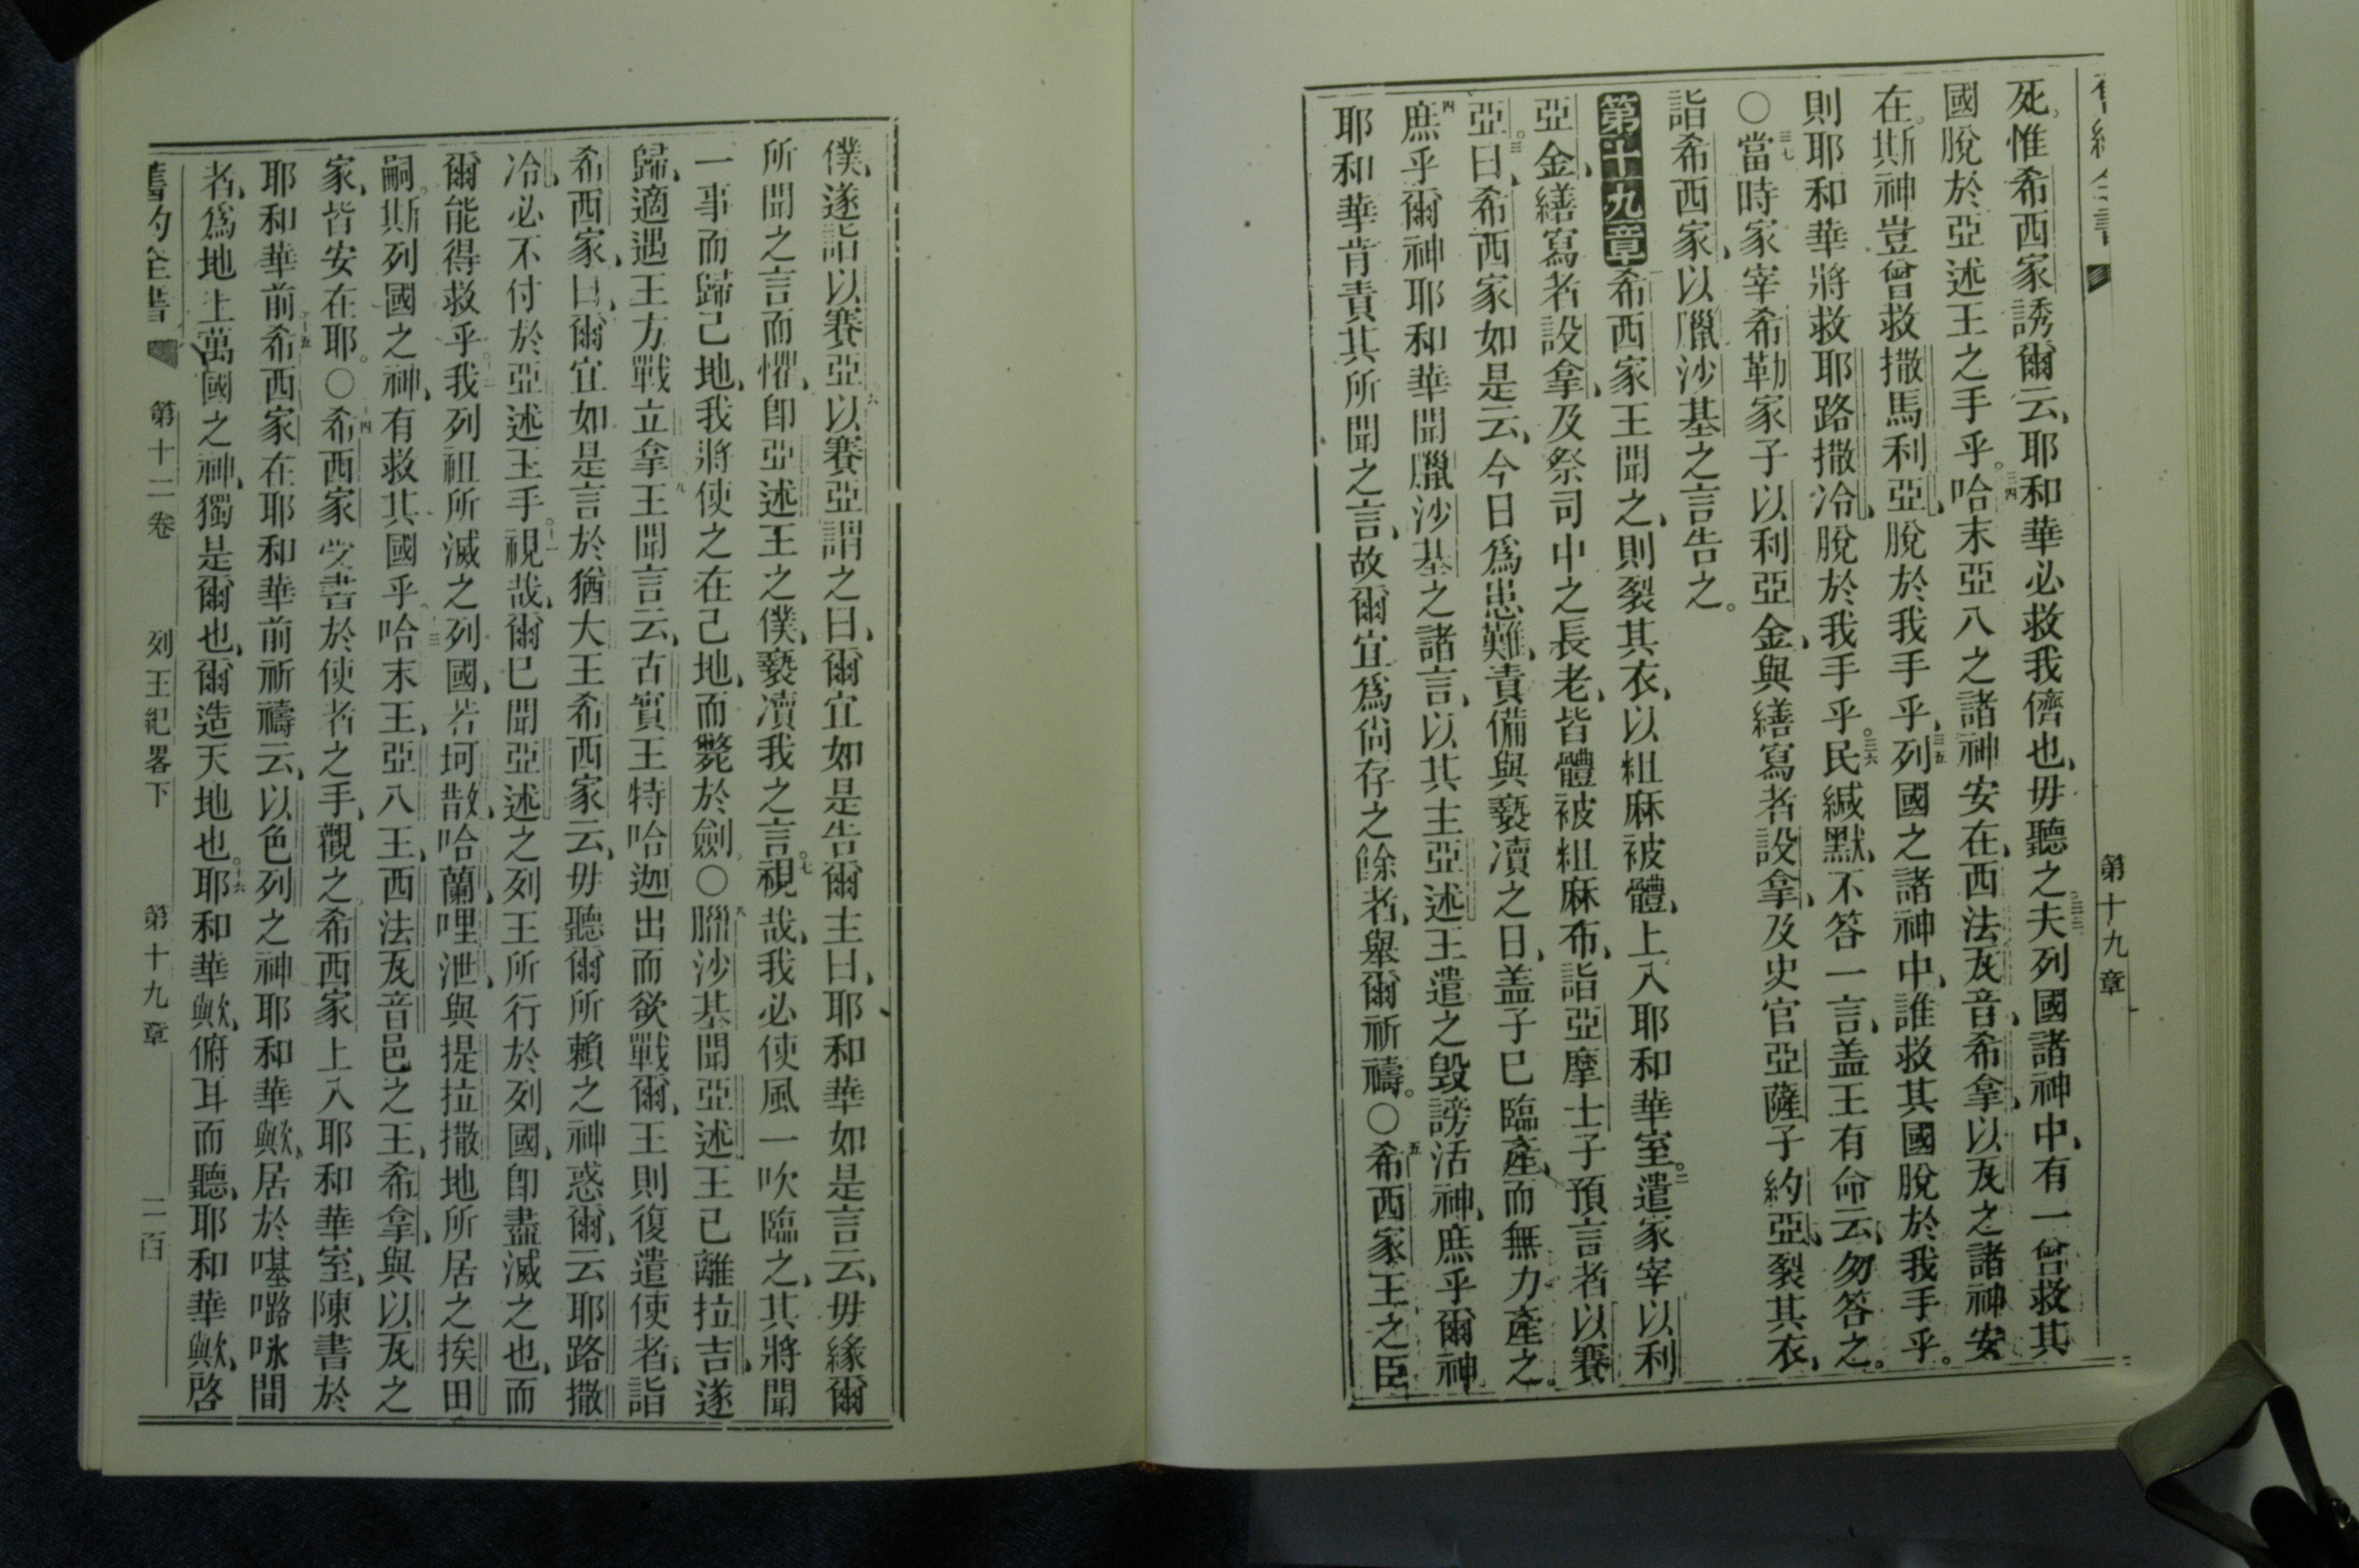 第十九章
死。惟希西家誘爾云、耶和華必救我儕也、毋聽之。三三夫列國諸神中、有一曾救其
國脫於亞述王之手乎。三四哈末亞八之諸神安在、西法瓦音、希拿、以瓦之諸神安
在。斯神豈曾救撒馬利亞、脫於我手乎、三五列國之諸神中、誰救其國脫於我手乎。
則耶和華將救耶路撒冷、脫於我手乎。三六民緘默、不答一言、盖王有命云、勿答之。
〇三七當時家宰希勒家子以利亞金、與繕寫者設拿、及史官亞薩子約亞、裂其衣、
詣希西家、以臘沙基之言告之。
第十九章 一希西家王聞之、則裂其衣、以粗麻被體、上入耶和華室。二遣家宰以利
亞金、繕寫者設拿、及祭司中之長老、皆體被粗麻布、詣亞摩士子預言者以賽
亞。三曰、希西家如是云、今日為患難、責備與褻瀆之日、盖子已臨產、而無力產之。
四庶乎爾神耶和華聞臘沙基之諸言、以其主亞述王遣之毀謗活神、庶乎爾神
耶和華肯責其所聞之言、故爾宜為尚存之餘者、舉爾祈禱。〇五希西家王之臣
僕、遂詣以賽亞。六以賽亞謂之曰、爾宜如是告爾主曰、耶和華如是言云、毋緣爾
所聞之言而懼、卽亞述王之僕、褻瀆我之言。七視哉、我必使風一吹臨之、其將聞
一事而歸己地、我將使之在己地、而斃於劍。〇八臘沙基聞亞述王已離拉吉、遂
歸、適遇王方戰立拿。九王聞言云、古實王特哈迦出而欲戰爾、王則復遣使者、詣
希西家、曰、爾宜如是言於猶大王希西家云、毋聽爾所賴之神惑爾、云耶路撒
冷、必不付於亞述王手。十一視哉、爾已聞亞述之列王所行於列國、卽盡滅之也、而
爾能得救乎。十二我列祖所滅之列國、若坷散、哈蘭、哩泄、與提拉撒地所居之挨田
嗣。斯列國之神、有救其國乎。十三哈末王、亞八王、西法瓦音邑之王、希拿、與以瓦之
家、皆安在耶。〇十四希西家受書於使者之手、觀之、希西家上入耶和華室、陳書於
耶和華前。十五希西家在耶和華前祈禱云、以色列之神耶和華歟、居於𠼻嚕咏間
者、為地上萬國之神、獨是爾也、爾造天地也。十六耶和華歟、俯耳而聽、耶和華歟、啓
舊約全書 第十二卷 列王紀畧下 第十九章 二百